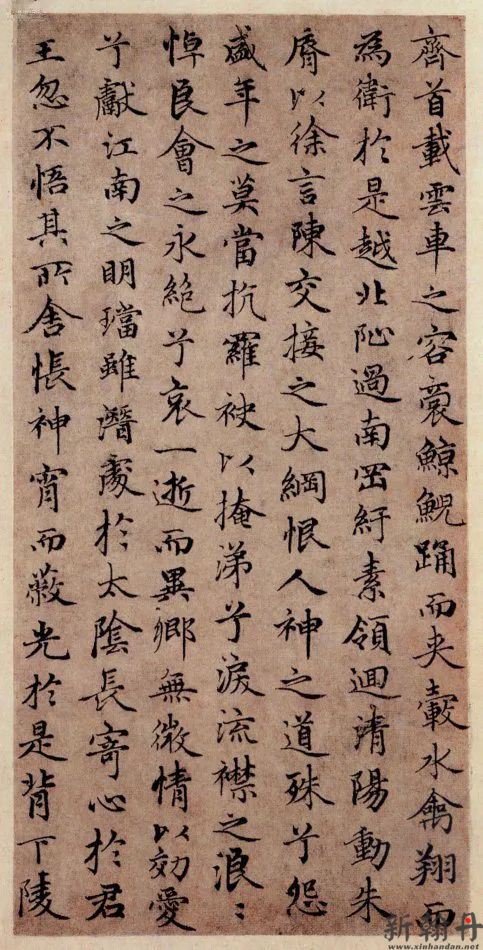 齊首載雲車之容裔鯨鯢踊而夾轂水禽翔而
為衛於是越北沚過南岡紆素領迴清陽動朱
脣以徐言陳交接之大綱恨人神之道殊兮怨
盛年之莫當抗羅袂以掩涕兮淚流襟之浪〻
悼良會之永絕兮哀一逝而異鄉無微情以効愛
兮獻江南之明璫雖潛處於太陰長寄心於君
王忽不悟其所舍悵神宵而蔽光於是背下陵
新翰丹
www.xinhandan.net